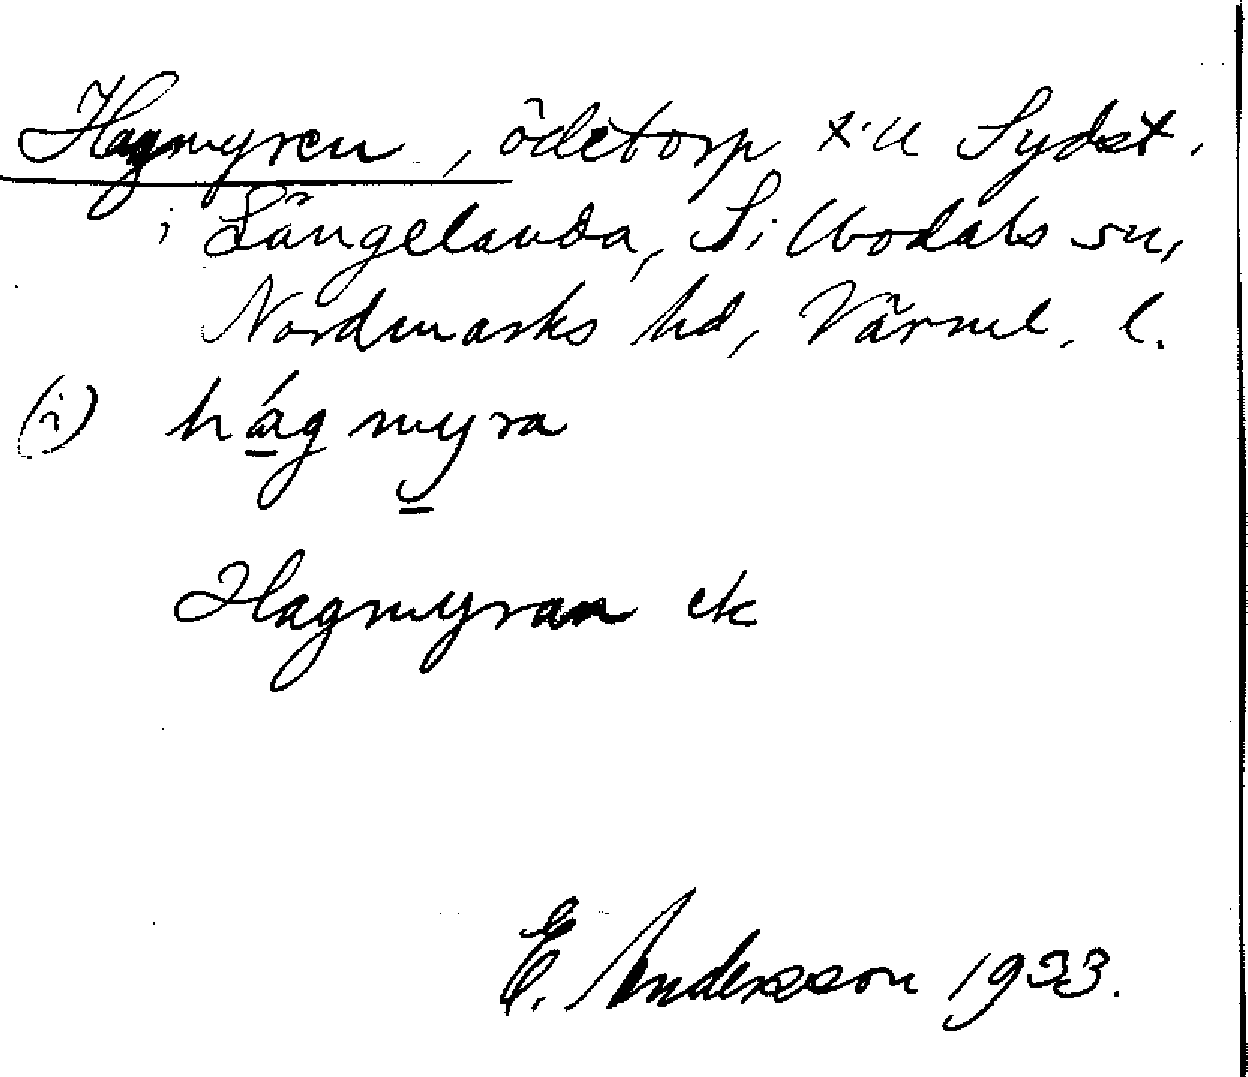 Hagmyren, ödetorp till Sydöst.
i Längelanda, Sillbodals sn,
Nordmarks hd, Värml. l.
(i) hágmyra
Hagmyran ek
E. Andersson 1933.